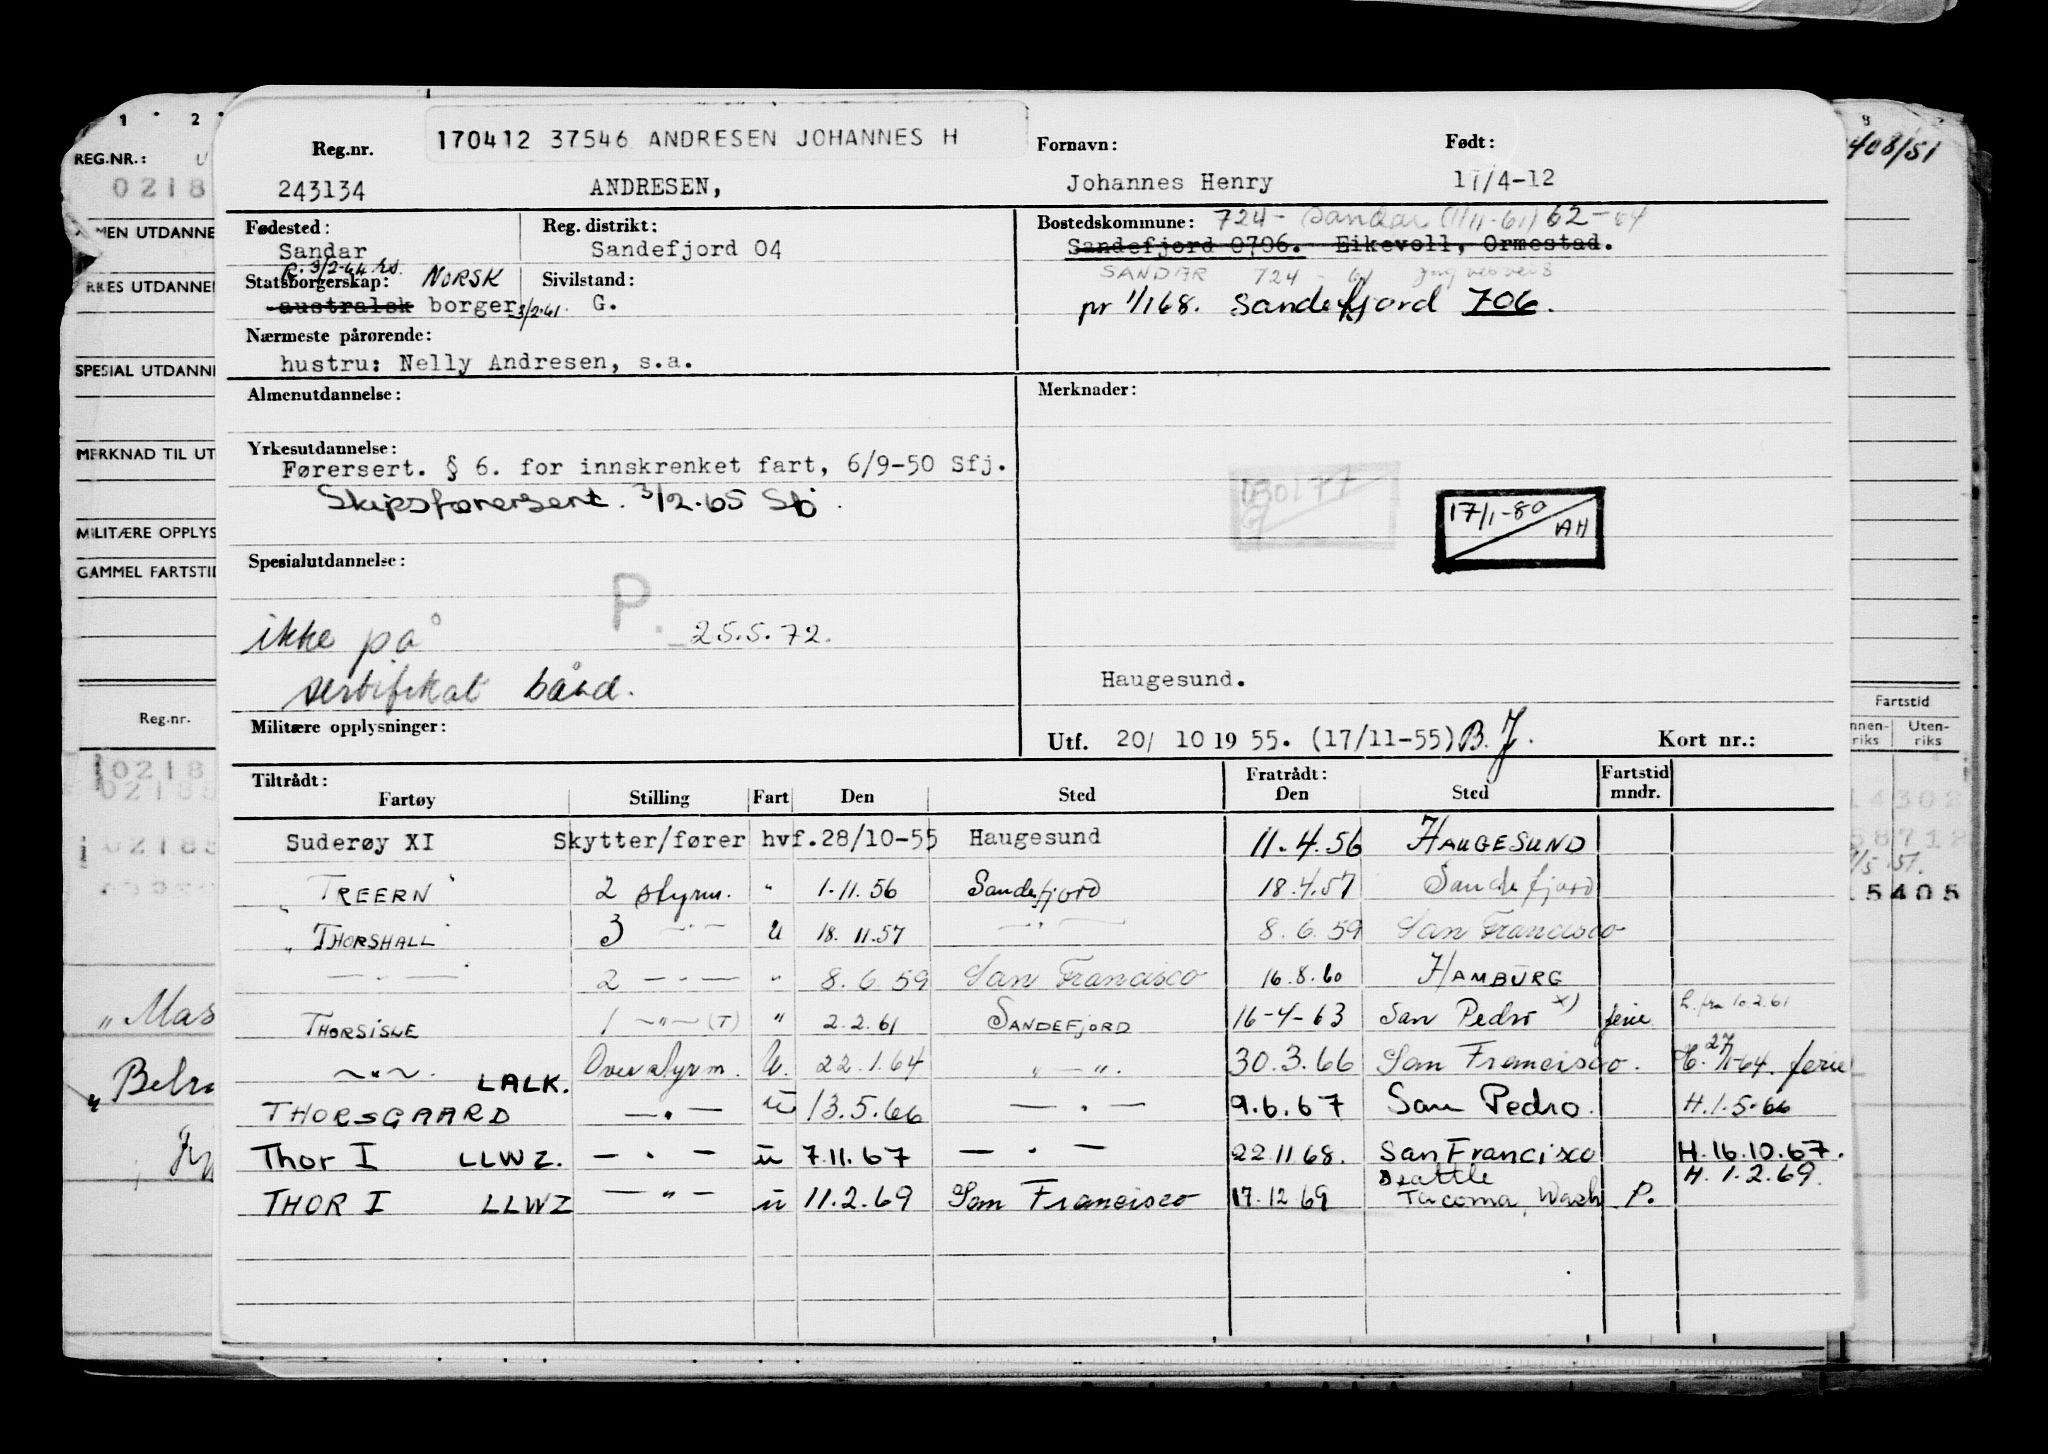 170412 37546 ANDRESEN JOHANNES H
Reg.nr. Fornavn: Født:
243134 ANDRESEN, Johannes Henry 17/4-12
Fødested: Reg. distrikt: Bostedskommune: 724- Sandar (1/11-61) 62-64
Sandar Sandefjord 04 Sandefjord 0706. Eikevoll, Ormestad.
R. 3/2-64 hs. SANDAR 724 - 61
Statsborgerskap: NORSK Sivilstand:
australsk borger 3/2.61 G. pr 1/1 68. Sandefjord 706.
Nærmeste pårørende:
hustru: Nelly Andresen, s.a.
Almenutdannelse: Merknader:
Yrkesutdannelse:
Førersert. § 6. for innskrenket fart, 6/9-50 Sfj.
Skipsførersert. 3/2.65 Sfj.
17/1-80 AH
Spesialutdannelse:
P. 25.5.72.
ikke på
sertifikat bånd.
Haugesund.
Militære opplysninger:
Utf. 20/ 10 19 55. (17/11-55) B.J. Kort nr.:
Tiltrådt: Fratrådt: Fartstid
Fartøy Stilling Fart Den Sted Den Sted mndr.
Suderøy XI Skytter/fører hvf. 28/10-55 Haugesund 11.4.56 HAUGESUND
"TREERN" 2 styrm. " 1.11.56 Sandefjord 18.4.57 Sandefjord
"THORSHALL" 3 —"— U 18.11.57 —"— 8.6.59 San Francisco
—"— 2 —"— " 8.6.59 San Francisco 16.8.60 HAMBURG
THORSISLE 1 —"— (T) " 2.2.61 SANDEFJORD 16-4-63 San Pedro x) ferie h. fra 10.2.61
—"— Overstyrm. U. 22.1.64 —"— 30.3.66 San Francisco. H. 27/1-64. ferie
THORSGAARD LALK. —"— U 13.5.66 —"— 9.6.67 San Pedro. H.1.5.66
Thor I LLWZ. —"— U 7.11.67 —"— 22.11.68. San Francisco H.16.10.67.
THOR I LLWZ —"— U 11.2.69 San Francisco 17.12.69 Seattle Tacoma, Wash P. H. 1.2.69.
1 2
REG.NR.:
0218
ALMEN UTDANNE
YRKES UTDANNE
SPESIAL UTDANN
MERKNAD TIL UT
MILITÆRE OPPLYS
GAMMEL FARTSTID
Reg.nr.
0218
02188
02188
"Mas
"Belra
408/51
Fartstid
Innen-riks Uten-riks
14302
58712
15405